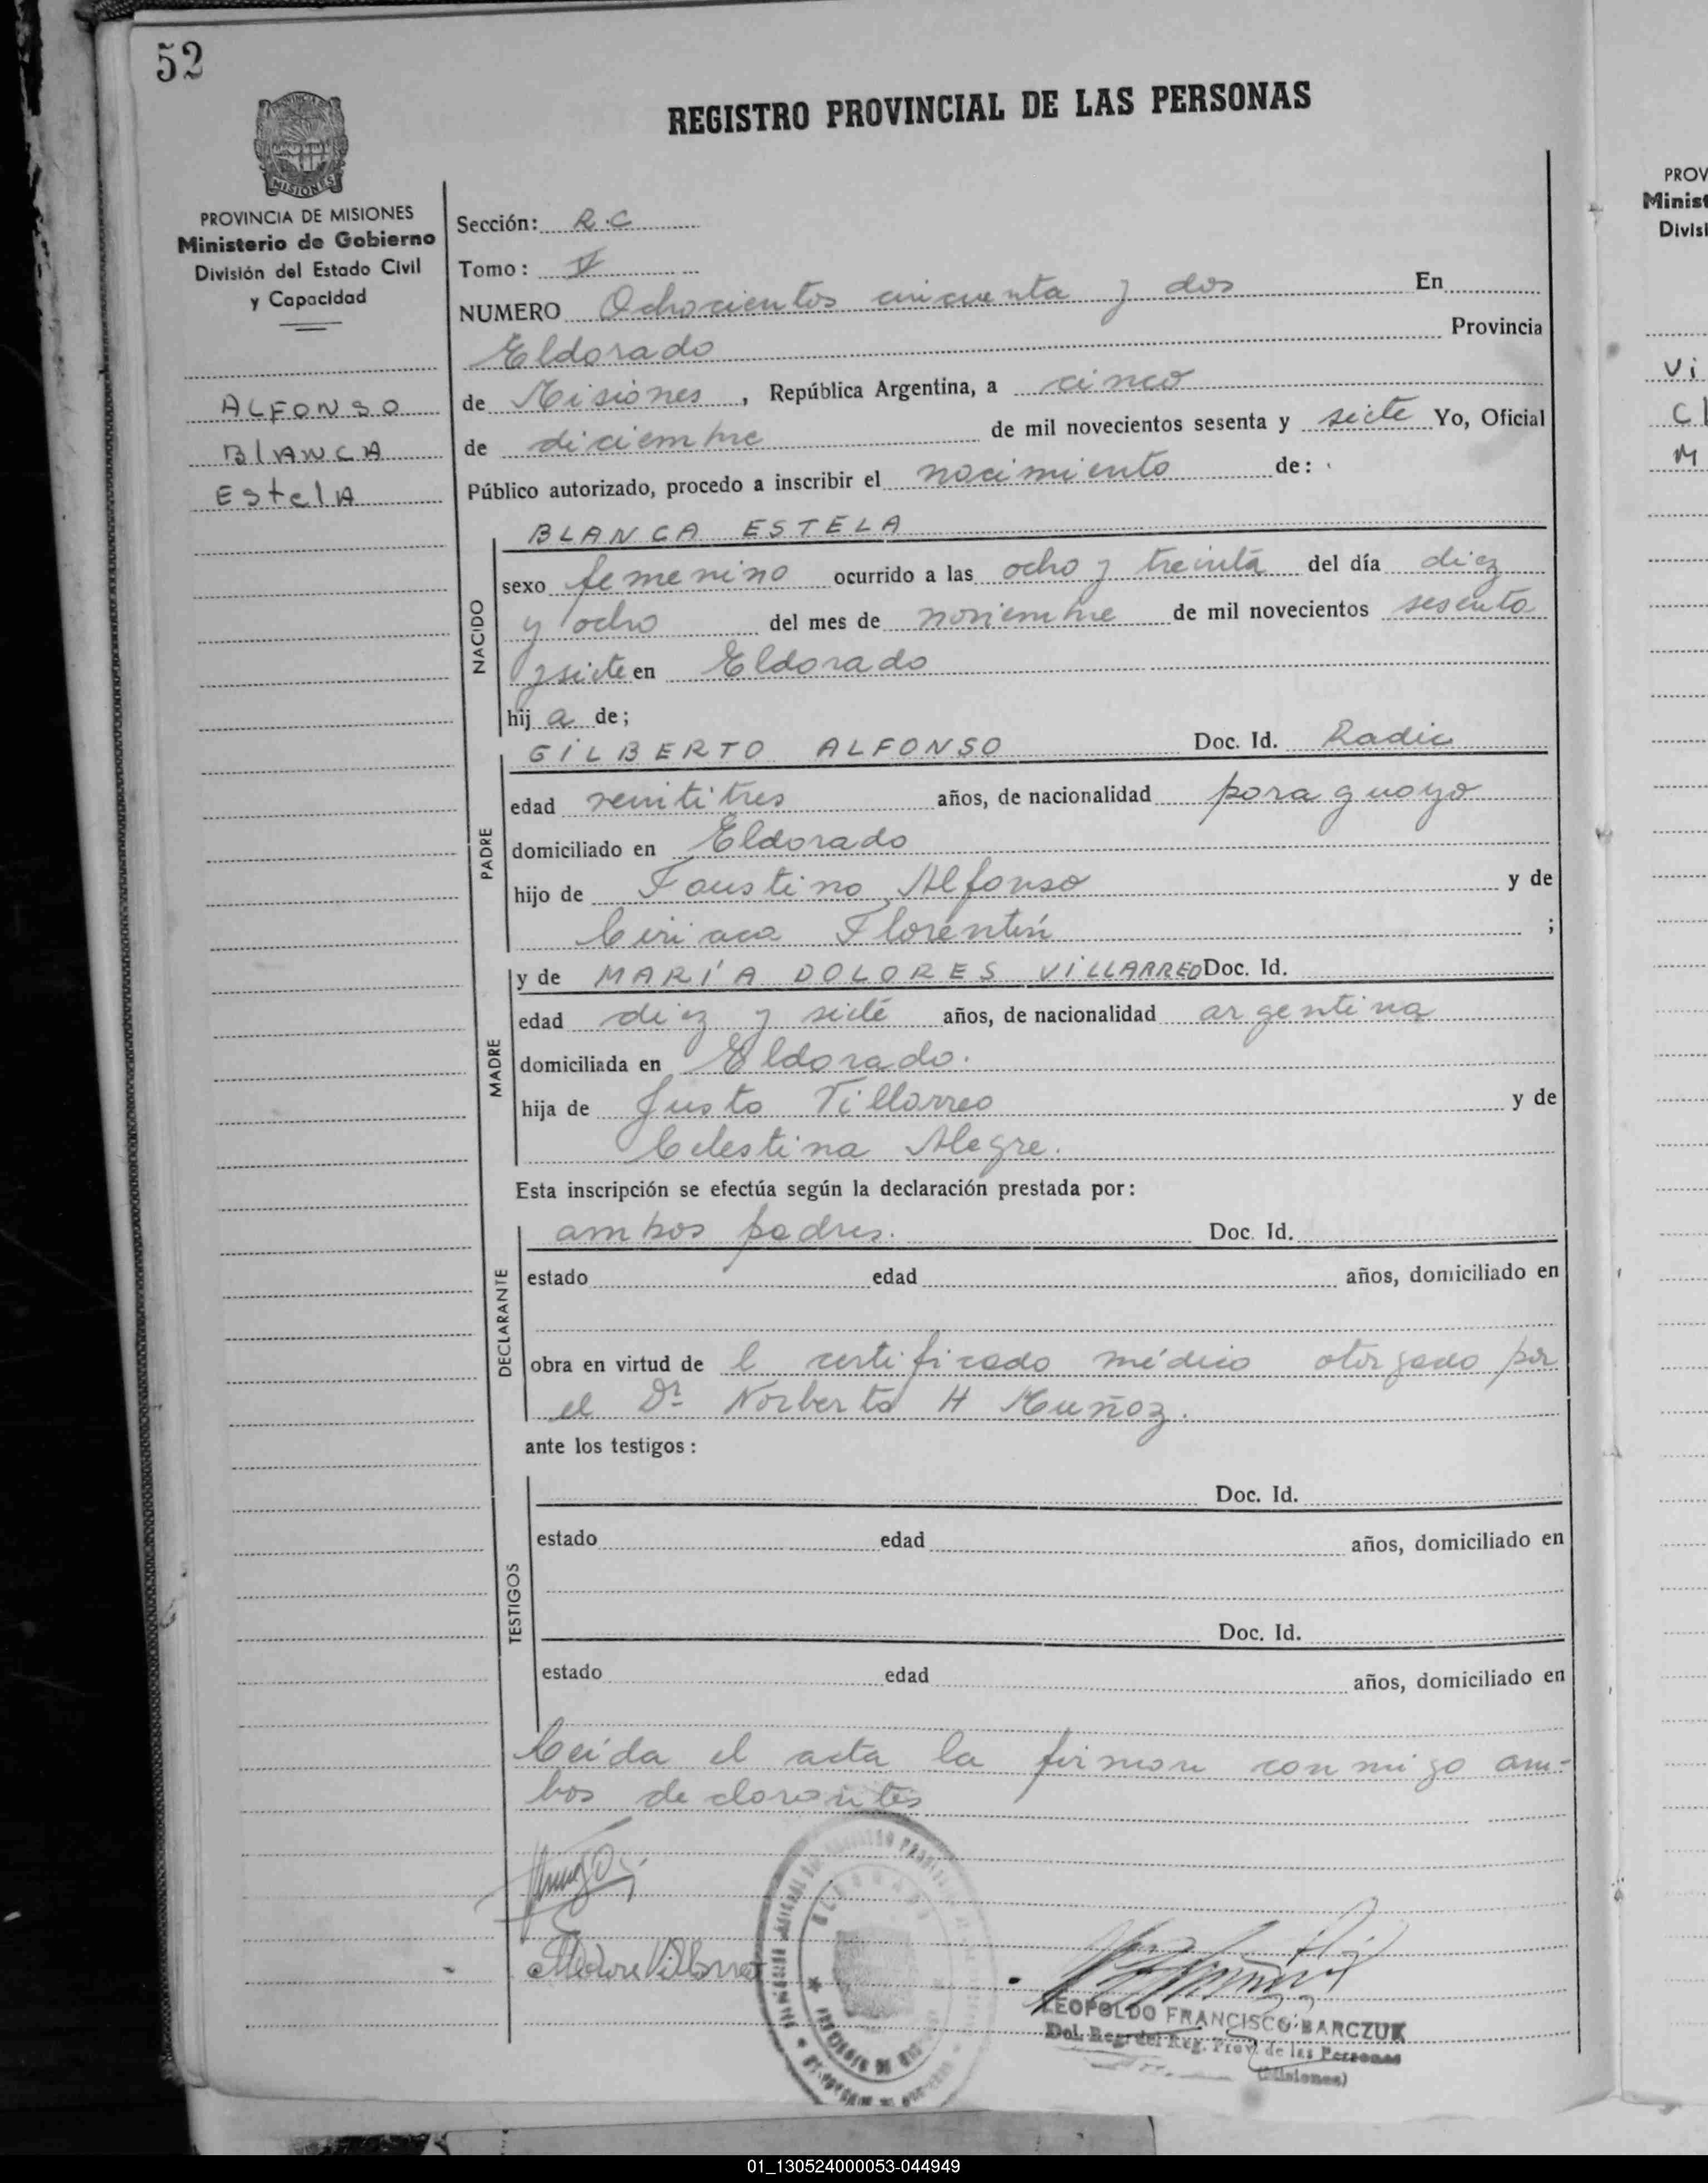 52
REGISTRO PROVINCIAL DE LAS PERSONAS
MISIONES
PROVINCIA DE MISIONES
Ministerio de Gobierno
División del Estado Civil
y Capacidad
ALFONSO
BlANCA
EstelA
Sección: R.C
Tomo: V
NUMERO Ochocientos cincuenta y dos En
Eldorado Provincia
de Misiones, República Argentina, a cinco
de diciembre de mil novecientos sesenta y siete Yo, Oficial
Público autorizado, procedo a inscribir el nacimiento de:
NACIDO
BLANCA ESTELA
sexo femenino ocurrido a las ocho y treinta del día diez
y ocho del mes de noviembre de mil novecientos sesenta
y siete en Eldorado
hij a de;
PADRE
GILBERTO ALFONSO Doc. Id. Radic
edad veintitres años, de nacionalidad paraguayo
domiciliado en Eldorado
hijo de Faustino Alfonso y de
Ciriaca Florentín ;
MADRE
y de MARÍA DOLORES VILLARREO Doc. Id.
edad diez y siete años, de nacionalidad argentina
domiciliada en Eldorado.
hija de Justo Villarreo y de
Celestina Alegre.
Esta inscripción se efectúa según la declaración prestada por:
DECLARANTE
ambos padres. Doc. Id.
estado edad años, domiciliado en
obra en virtud de l certificado médico otorgado por
el Dr Norberto H Muñoz.
ante los testigos:
TESTIGOS
Doc. Id.
estado edad años, domiciliado en
Doc. Id.
estado edad años, domiciliado en
Leída el acta la firman conmigo am-
bos declarantes
LEOPOLDO FRANCISCO BARCZUK
Del. Reg. del Reg. Prov. de las Personas
(Misiones)
PROV
Minist
Divisi
Vi
Cl
M
01_130524000053-044949